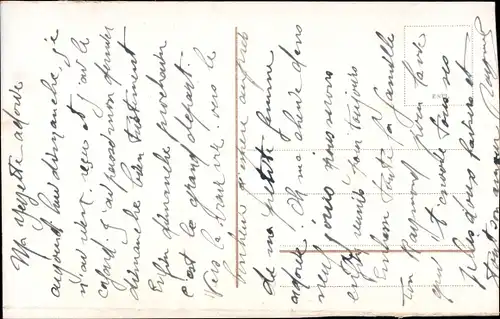 Ma Yoyette adorée
aujourd'hui dimanche, je
n'ai rient reçu et j'ai le
cafard, j'ai passé mon dernier
dimanche bien tristement
Enfin dimanche prochain
c'est le grand départ
Vers la vie, vers le
bonheur de vivre auprès
de ma petite femme
adorée. Oh ma chérie dans
neuf jours nous serons
enfin réunis pour toujours
Embrasse toute la famille
Ton Raymond pour la vie
qui t'envoie tous ses
plus doux baisers et
Raymond